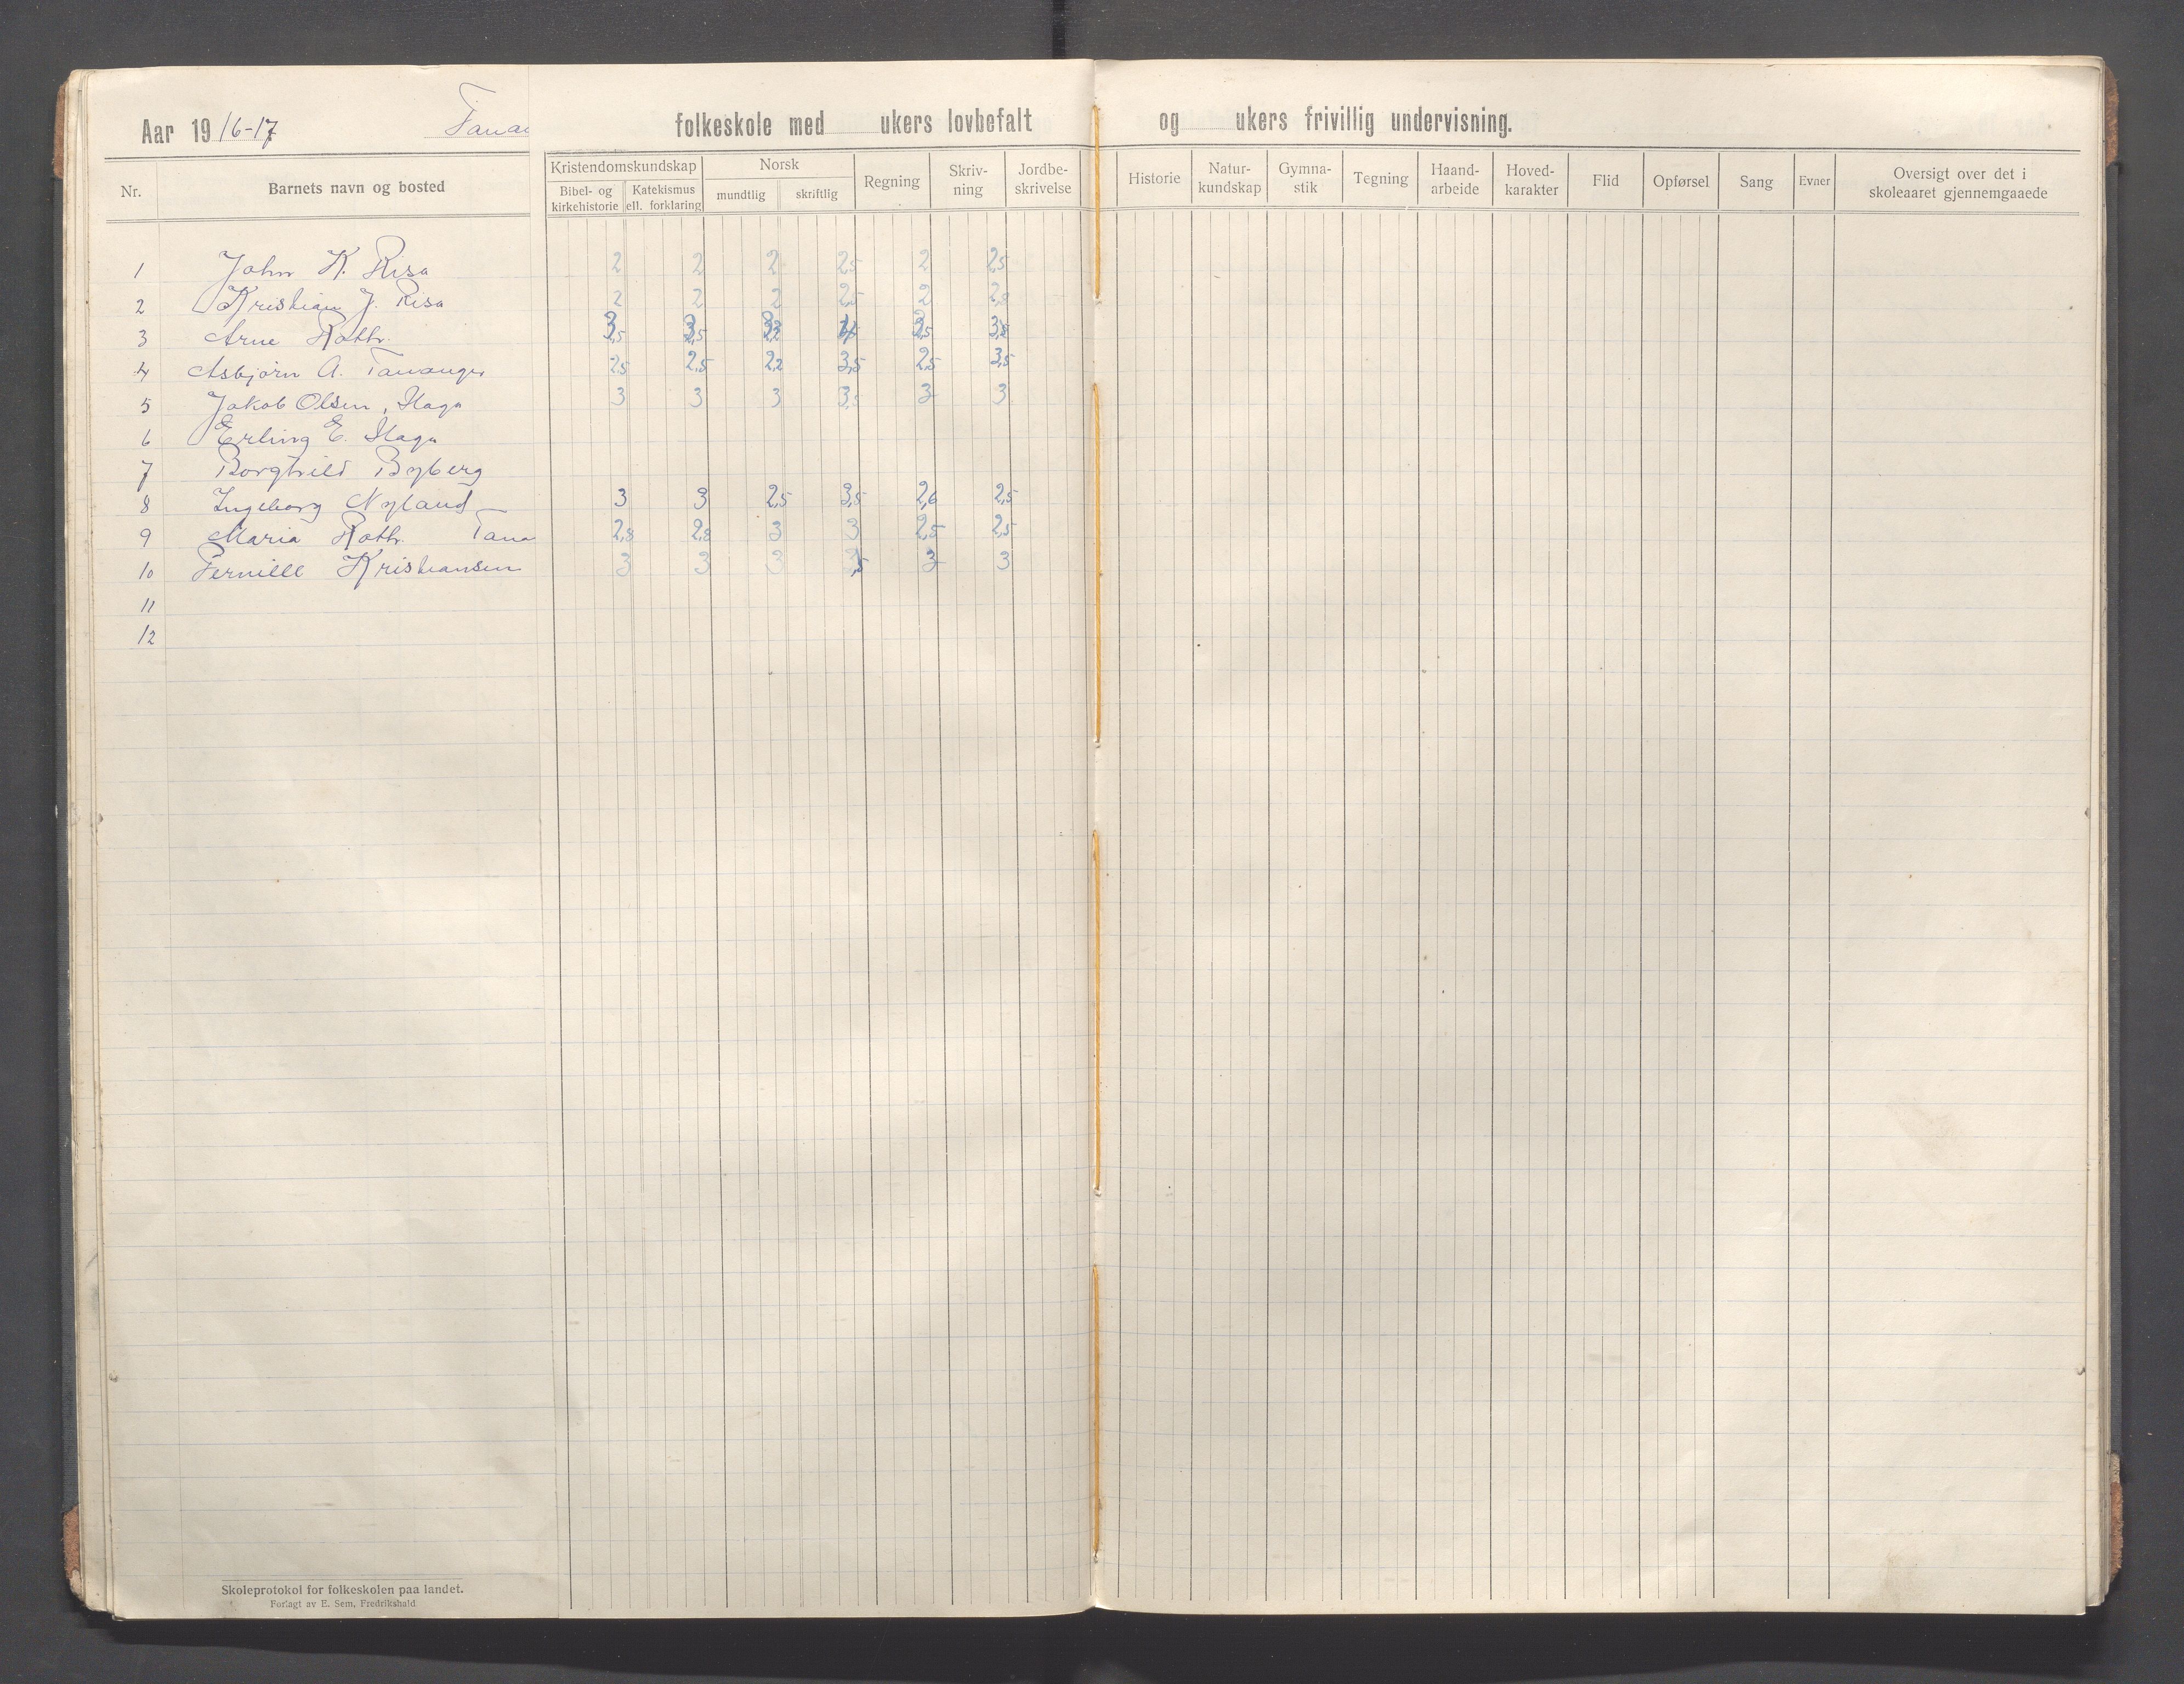 Aar 1916-17 Tanan folkeskole med ukers lovbefalt og ukers frivillig undervisning.
Nr. Barnets navn og bosted Kristendomskundskap Bibel- og kirkehistorie Katekismus ell. forklaring Norsk mundtlig skriftlig Regning Skriv-ning Jordbe-skrivelse Historie Natur-kundskap Gymna-stik Tegning Haand-arbeide Hoved-karakter Flid Opførsel Sang Evner Oversigt over det i skoleaaret gjennemgaaede
1 John K. Risa 2 2 2 2,5 2 2,5
2 Kristian J. Risa 2 2 2 2,5 2
3 Arne Roth.
4 Asbjørn A. Tananger 2,5 2,5 2,2 3,5 2,5 3,5
5 Jakob Olsen, Haga 3 3 3 3,5 3 3
6 Erling E. Haga
7 Borghild Byberg
8 Ingeborg Nyland 3 3 2,5 3,5 2,6 2,5
9 Maria Roth. Tana 2,8 2,8 3 3 2,5 2,5
10 Pernille Kristiansen 3 3 3 3,5 3 3
11
12
Skoleprotokol for folkeskolen paa landet.
Forlagt av E. Sem, Fredrikshald